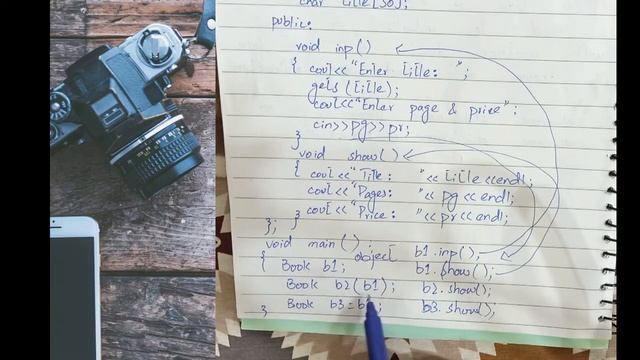 char title[30];
public:
void inp()
{ cout<<"Enter title: ";
gets(title);
cout<<"Enter page & price";
cin>>pg>>pr;
}
void show()
{ cout<<"Title: "<< title <<endl;
cout<<"Pages: "<< pg << endl;
}; } cout<<"Price: "<< pr<<endl;
void main() : object b1.inp();
{ Book b1; b1.show();
Book b2(b1); b2.show();
} Book b3= ; b3.show();